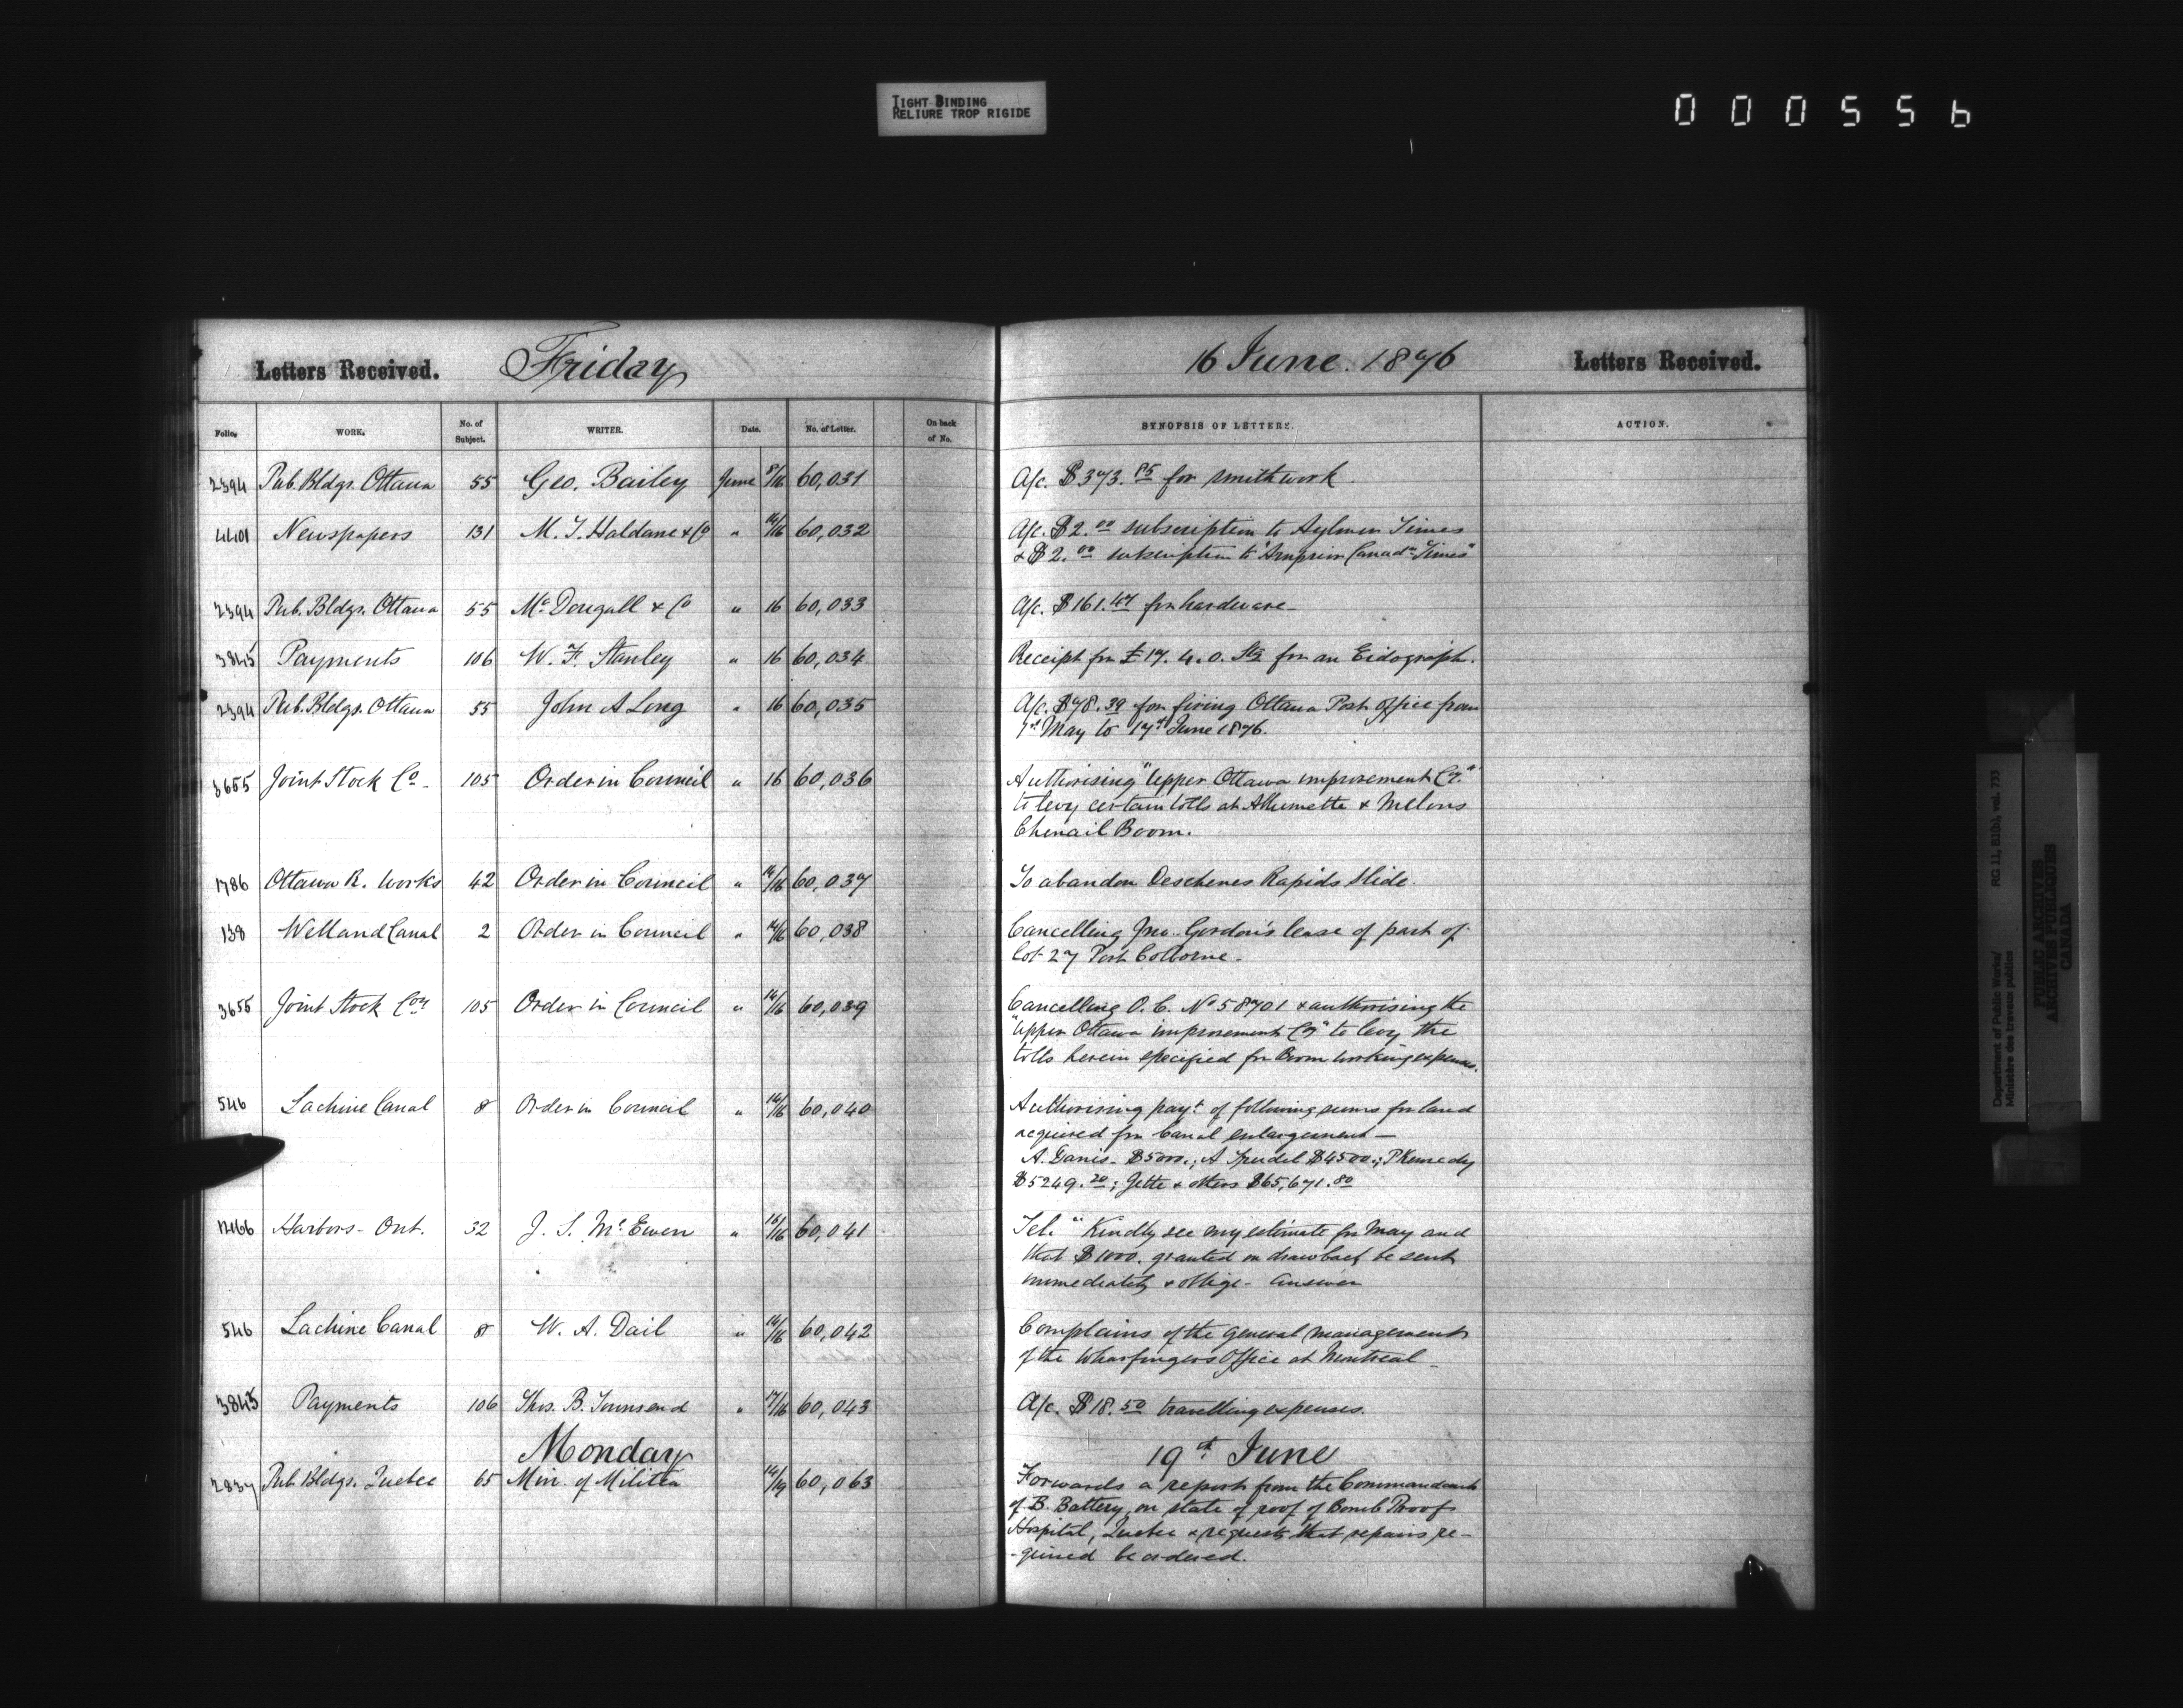 TIGHT BINDING
RELIURE TROP RIGIDE
000556
Letters Received. Friday 16 June. 1876 Letters Received.
Folio. WORK. No. of Subject. WRITER. Date. No. of Letter. On back of No. SYNOPSIS OF LETTERS. ACTION.
2394 Pub. Bldgs. Ottawa 55 Geo. Bailey June 8/16 60,031 A/c. $373.85 for smithwork.
4401 Newspapers 131 M. J. Haldane & Co " 14/16 60,032 A/c. $2.00 subscription to Aylmer Times
& $2.00 subscription to "Arnprior Canadn Times"
2394 Pub. Bldgs. Ottawa 55 McDougall & Co " 16 60,033 A/c. $161.47 for hardware-
3845 Payments 106 W. F. Stanley " 16 60,034 Receipt for £17. 4. 0. Stg for an Eidograph.
2394 Pub. Bldgs. Ottawa 55 John A Long " 16 60,035 A/c. $78.39 for firing Ottawa Post Office from
1st May to 17th June 1876.
3655 Joint Stock Co- 105 Order in Council " 16 60,036 Authorising "Upper Ottawa improvement Co."
to levy certain tolls at Allumette & Melons
Chenail Boom.
1786 Ottawa R. Works 42 Order in Council " 14/16 60,037 To abandon Deschenes Rapids Slide.
138 Welland Canal 2 Order in Council " 14/16 60,038 Cancelling Jno. Gordon's lease of part of
lot 27 Port Colborne-
3655 Joint Stock Coy 105 Order in Council " 14/16 60,039 Cancelling O. C. No 58701 & authorising the
"Upper Ottawa improvement Coy" to levy the
tolls herein specified for Boom working expenses.
546 Lachine Canal 8 Order in Council " 14/16 60,040 Authorising payt of following sums for land
required for Canal enlargement—
A. Danis- $5000.; A $4500.; P Kennedy
$5249.20; Jette & others $65,671.80
1466 Harbors- Ont. 32 J. S. McEwen " 15/16 60,041 Tel. "Kindly see my estimate for May and
that $1000. granted on drawback be sent
immediately & oblige- answer
546 Lachine Canal 8 W. A. Dail " 14/16 60,042 Complains of the general management
of the Wharfingers Office at Montreal-
3845 Payments 106 Thos. B. Townsend " 17/16 60,043 A/c. $18.50 travelling expenses.
Monday 19th June
2837 Pub. Bldgs. Quebec 65 Min. of Militia 14/19 60,063 Forwards a report from the Commandant
of B. Battery, on state of roof of Bomb Proof
Hospital, Quebec & requests that repairs re-
-quired be ordered.
Department of Public Works/
Ministère des travaux publics
RG 11, B1(b), vol. 733
PUBLIC ARCHIVES
ARCHIVES PUBLIQUES
CANADA